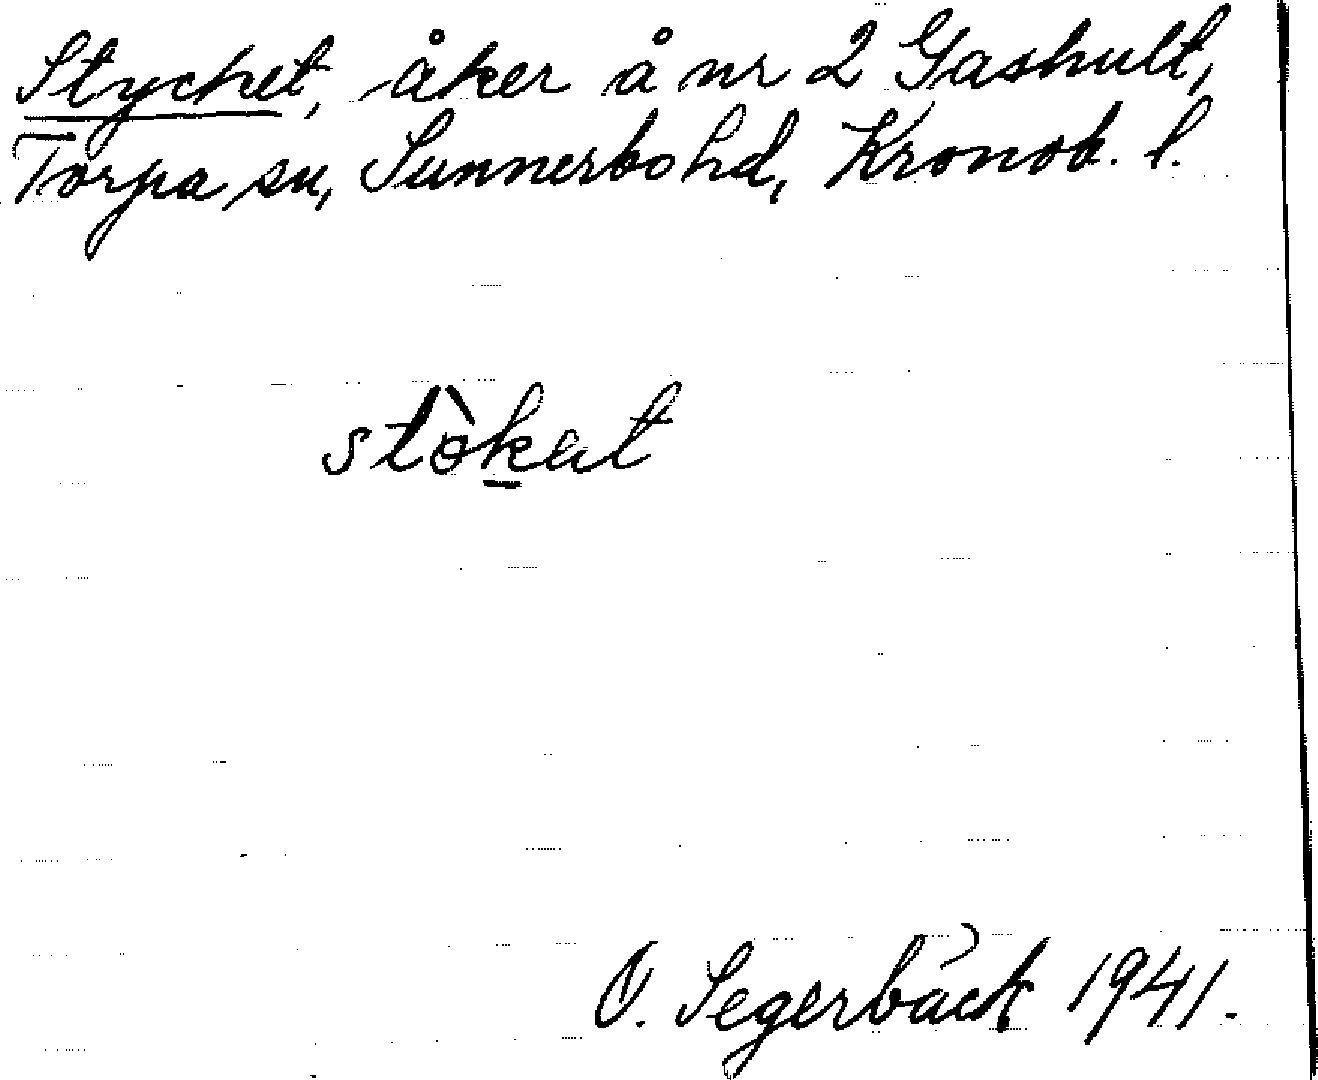 Stycket, åker å nr 2 Gashult,
Torpa sn, Sunnerbo hd, Kronob. l.
stòkat
O. Segerbäck 1941.